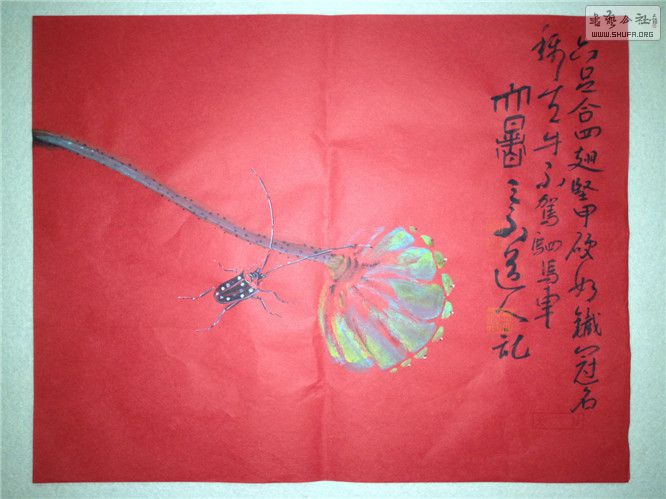 六足合四翅堅甲硬如鐵冠名
稱天牛不駕駟馬車
大暑 道人記
書藝公社
WWW.SHUFA.ORG